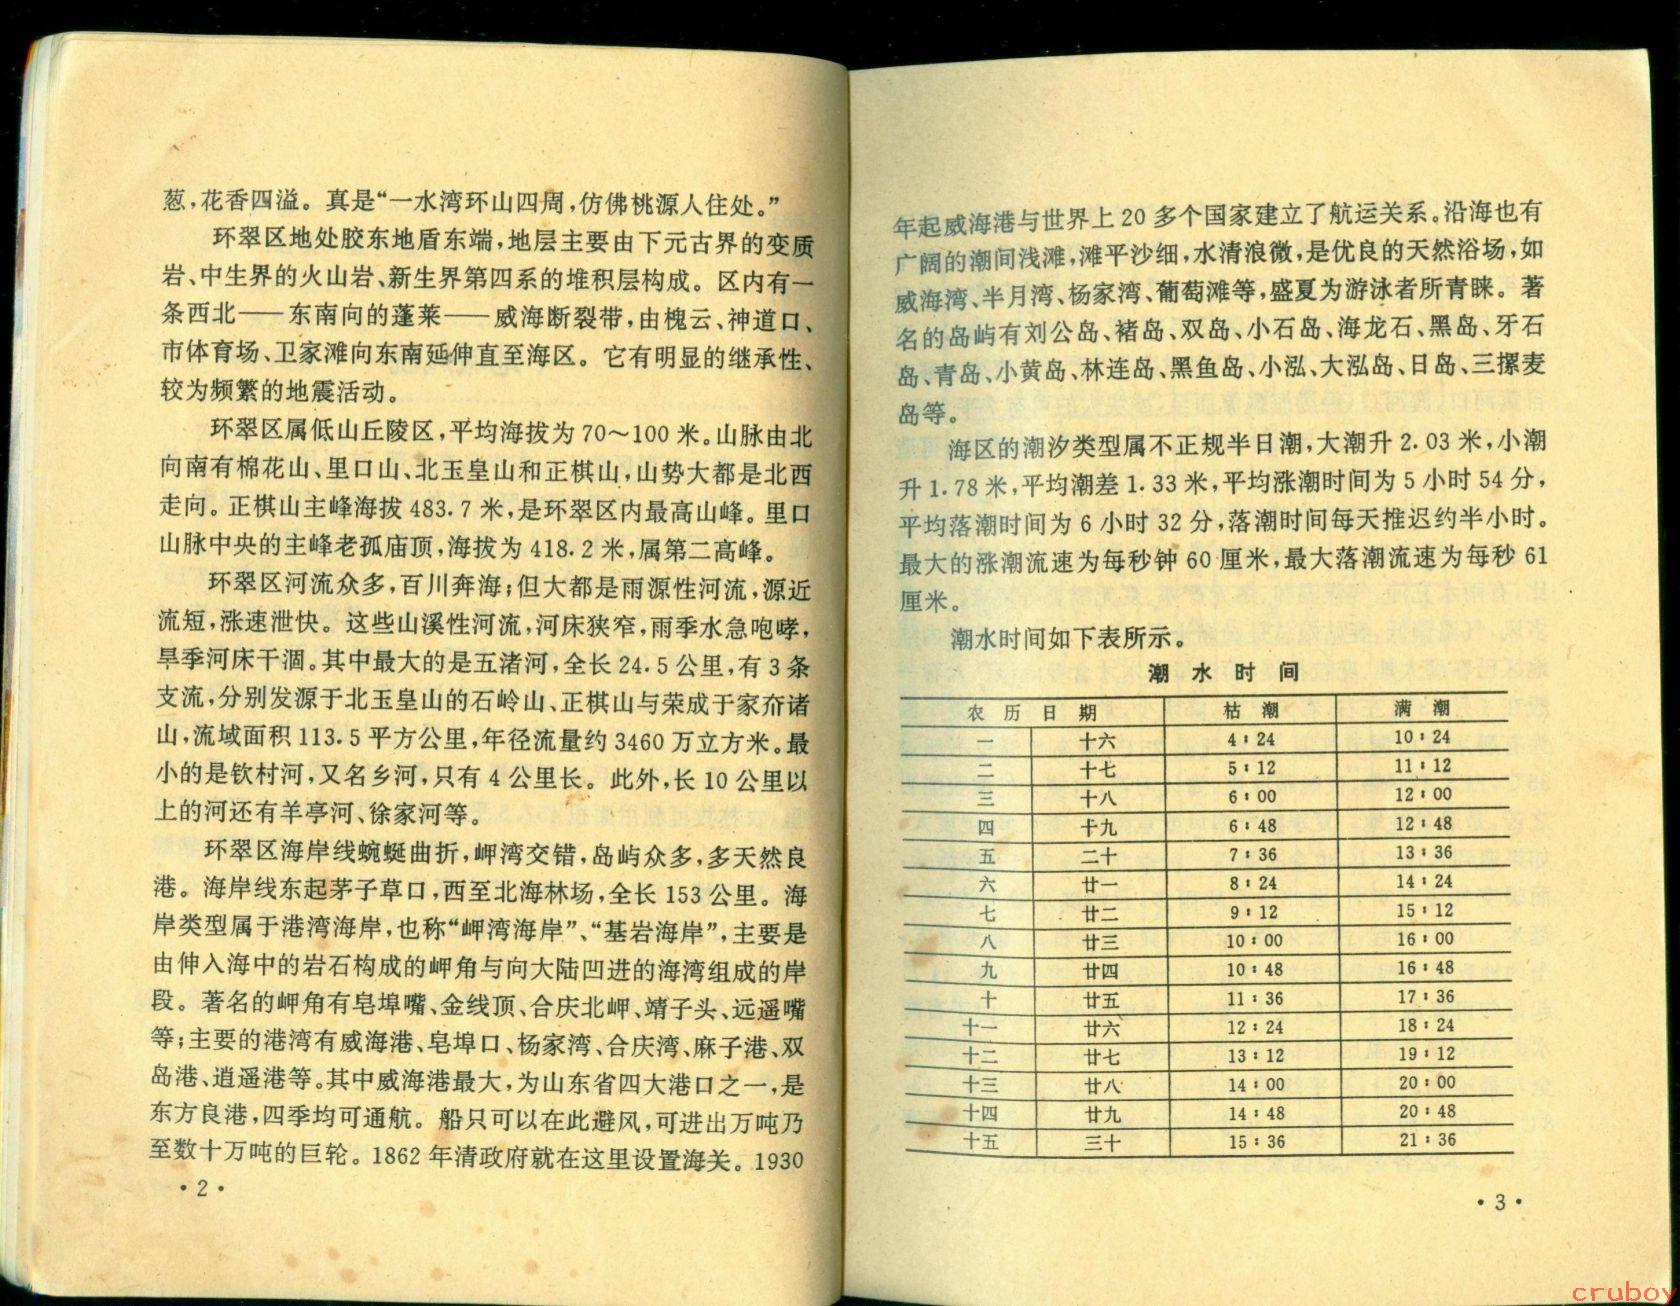 葱,花香四溢。真是“一水湾环山四周,仿佛桃源人住处。”
环翠区地处胶东地盾东端,地层主要由下元古界的变质
岩、中生界的火山岩、新生界第四系的堆积层构成。区内有一
条西北——东南向的蓬莱——威海断裂带,由槐云、神道口、
市体育场、卫家滩向东南延伸直至海区。它有明显的继承性、
较为频繁的地震活动。
环翠区属低山丘陵区,平均海拔为70～100米。山脉由北
向南有棉花山、里口山、北玉皇山和正棋山,山势大都是北西
走向。正棋山主峰海拔483.7米,是环翠区内最高山峰。里口
山脉中央的主峰老孤庙顶,海拔为418.2米,属第二高峰。
环翠区河流众多,百川奔海;但大都是雨源性河流,源近
流短,涨速泄快。这些山溪性河流,河床狭窄,雨季水急咆哮,
旱季河床干涸。其中最大的是五渚河,全长24.5公里,有3条
支流,分别发源于北玉皇山的石岭山、正棋山与荣成于家夼诸
山,流域面积113.5平方公里,年径流量约3460万立方米。最
小的是钦村河,又名乡河,只有4公里长。此外,长10公里以
上的河还有羊亭河、徐家河等。
环翠区海岸线蜿蜒曲折,岬湾交错,岛屿众多,多天然良
港。海岸线东起茅子草口,西至北海林场,全长153公里。海
岸类型属于港湾海岸,也称“岬湾海岸”、“基岩海岸”,主要是
由伸入海中的岩石构成的岬角与向大陆凹进的海湾组成的岸
段。著名的岬角有皂埠嘴、金线顶、合庆北岬、靖子头、远遥嘴
等;主要的港湾有威海港、皂埠口、杨家湾、合庆湾、麻子港、双
岛港、逍遥港等。其中威海港最大,为山东省四大港口之一,是
东方良港,四季均可通航。船只可以在此避风,可进出万吨乃
至数十万吨的巨轮。1862年清政府就在这里设置海关。1930
·2·
年起威海港与世界上20多个国家建立了航运关系。沿海也有
广阔的潮间浅滩,滩平沙细,水清浪微,是优良的天然浴场,如
威海湾、半月湾、杨家湾、葡萄滩等,盛夏为游泳者所青睐。著
名的岛屿有刘公岛、褚岛、双岛、小石岛、海龙石、黑岛、牙石
岛、青岛、小黄岛、林连岛、黑鱼岛、小泓、大泓岛、日岛、三摞麦
岛等。
海区的潮汐类型属不正规半日潮,大潮升2.03米,小潮
升1.78米,平均潮差1.33米,平均涨潮时间为5小时54分,
平均落潮时间为6小时32分,落潮时间每天推迟约半小时。
最大的涨潮流速为每秒钟60厘米,最大落潮流速为每秒61
厘米。
潮水时间如下表所示。
潮水时间
农历日期 枯潮 满潮
一 十六 4:24 10:24
二 十七 5:12 11:12
三 十八 6:00 12:00
四 十九 6:48 12:48
五 二十 7:36 13:36
六 廿一 8:24 14:24
七 廿二 9:12 15:12
八 廿三 10:00 16:00
九 廿四 10:48 16:48
十 廿五 11:36 17:36
十一 廿六 12:24 18:24
十二 廿七 13:12 19:12
十三 廿八 14:00 20:00
十四 廿九 14:48 20:48
十五 三十 15:36 21:36
·3·
cruboy